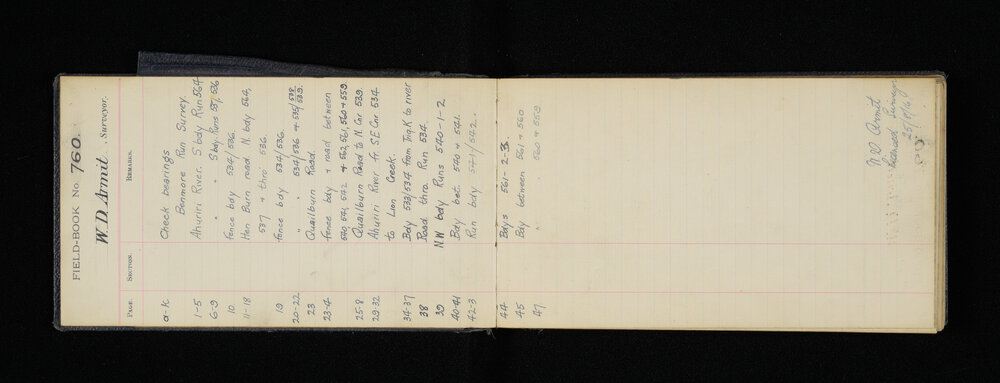 FIELD-BOOK No. 760.
W. D. Armit, Surveyor.
PAGE. SECTION. REMARKS.
a-k. Check bearings
Benmore Run Survey.
1-5 Ahuriri River. S. bdy Run 564
6-9 " " S bdy. Runs 537, 536
10. fence bdy 534/536.
11-18 Hen Burn road N. bdy 564,
537 & thro. 536.
19 fence bdy 534/536.
20-22 " " 534/536 & 535/538 539.
23 Quailburn Road.
23-4 fence bdy & road between
540, 541, 542 & 562, 561, 560 & 559.
25-8 Quailburn Road to N. Cor 539.
29-32 Ahuriri River fr S.E Cor 534
to Lion Creek
34-37 Bdy 533/534 from Trig. K to river
38 Road thro. Run 534.
39 NW bdy Runs 540-1-2
40-41 Bdy bet. 540 & 541.
42-3 Run bdy 541/542.
44 Bdys 561-2-3.
45 Bdy between 561 & 560
47 " 560 & 559
W D Armit
Surveyor